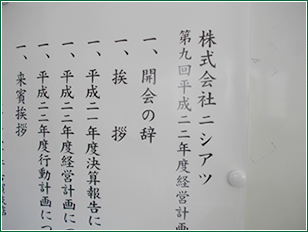 株式会社ニシアツ
第九回平成二二年度経営計画
一、開会の辞
一、挨拶
一、平成二一年度決算報告に
一、平成二二年度経営計画につ
一、平成二二年度行動計画につ
一、来賓挨拶